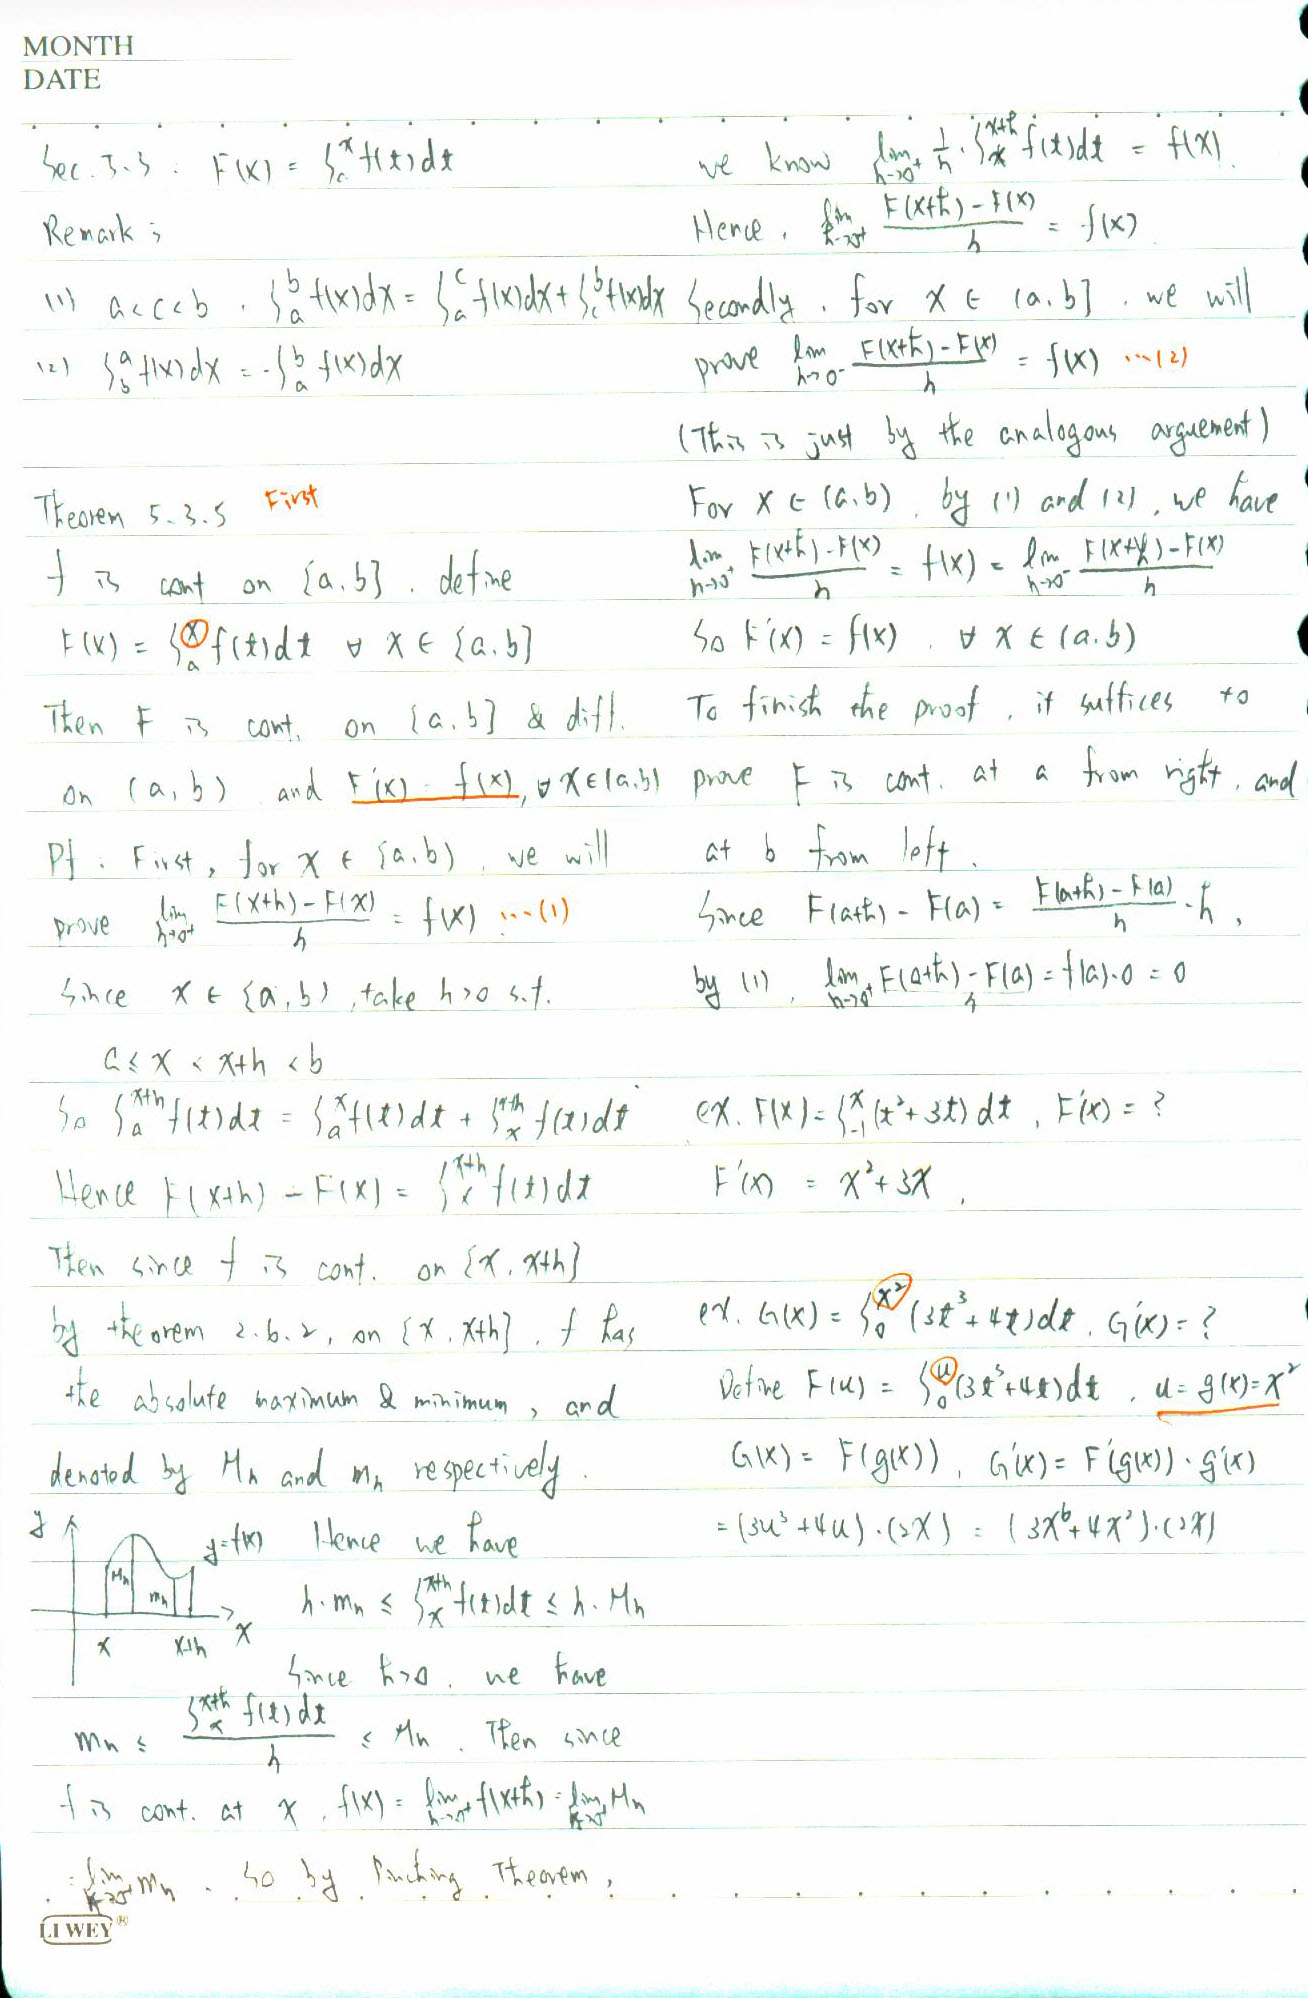 MONTH
DATE
Sec. 5.3 : F(x) = ∫ₐˣ f(t)dt
Remark :
(1) a<c<b . ∫ₐᵇ f(x)dx = ∫ₐᶜ f(x)dx + ∫꜀ᵇ f(x)dx
(2) ∫_b^a f(x)dx = -∫_a^b f(x)dx
Theorem 5.3.5 First
f is cont on [a,b] . define
F(x) = ∫_a^x f(t)dt ∀ x ∈ [a,b]
Then F is cont. on [a,b] & diff.
on (a,b) and F'(x) = f(x), ∀ x∈(a,b)
Pf : First, for x ∈ [a,b) , we will
prove lim_{h→0⁺} (F(x+h) - F(x))/h = f(x) ...(1)
Since x ∈ [a,b) , take h>0 s.t.
a ≤ x < x+h < b
So ∫_a^{x+h} f(t)dt = ∫_a^x f(t)dt + ∫_x^{x+h} f(t)dt
Hence F(x+h) - F(x) = ∫_x^{x+h} f(t)dt
Then since f is cont. on [x, x+h]
by theorem 2.6.2, on [x, x+h] , f has
the absolute maximum & minimum, and
denoted by M_h and m_h respectively.
y
y=f(x)
M_h
m_h
x
x+h
x
Hence we have
h·m_h ≤ ∫_x^{x+h} f(t)dt ≤ h·M_h
Since h>0 , we have
m_h ≤ (∫_x^{x+h} f(t)dt)/h ≤ M_h . Then since
f is cont. at x , f(x) = lim_{h→0⁺} f(x+h) = lim_{h→0⁺} M_h
= lim_{h→0⁺} m_h . So by Pinching Theorem,
we know lim_{h→0⁺} 1/h · ∫_x^{x+h} f(t)dt = f(x).
Hence , lim_{h→0⁺} (F(x+h) - F(x))/h = f(x)
Secondly , for x ∈ (a,b] , we will
prove lim_{h→0⁻} (F(x+h) - F(x))/h = f(x) ...(2)
(This is just by the analogous arguement)
For x ∈ (a,b) , by (1) and (2) , we have
lim_{h→0⁺} (F(x+h) - F(x))/h = f(x) = lim_{h→0⁻} (F(x+h) - F(x))/h
So F'(x) = f(x) , ∀ x ∈ (a,b)
To finish the proof , it suffices to
prove F is cont. at a from right , and
at b from left .
Since F(a+h) - F(a) = (F(a+h) - F(a))/h · h ,
by (1) , lim_{h→0⁺} F(a+h) - F(a) = f(a)·0 = 0
ex. F(x) = ∫_{-1}^x (t²+3t) dt , F'(x) = ?
F'(x) = x²+3x ,
ex. G(x) = ∫_0^{x²} (3t³+4t)dt , G'(x) = ?
Define F(u) = ∫_0^u (3t³+4t)dt , u = g(x) = x²
G(x) = F(g(x)) , G'(x) = F'(g(x)) · g'(x)
= (3u³+4u)·(2x) = (3x⁶+4x²)·(2x)
LI WEY®